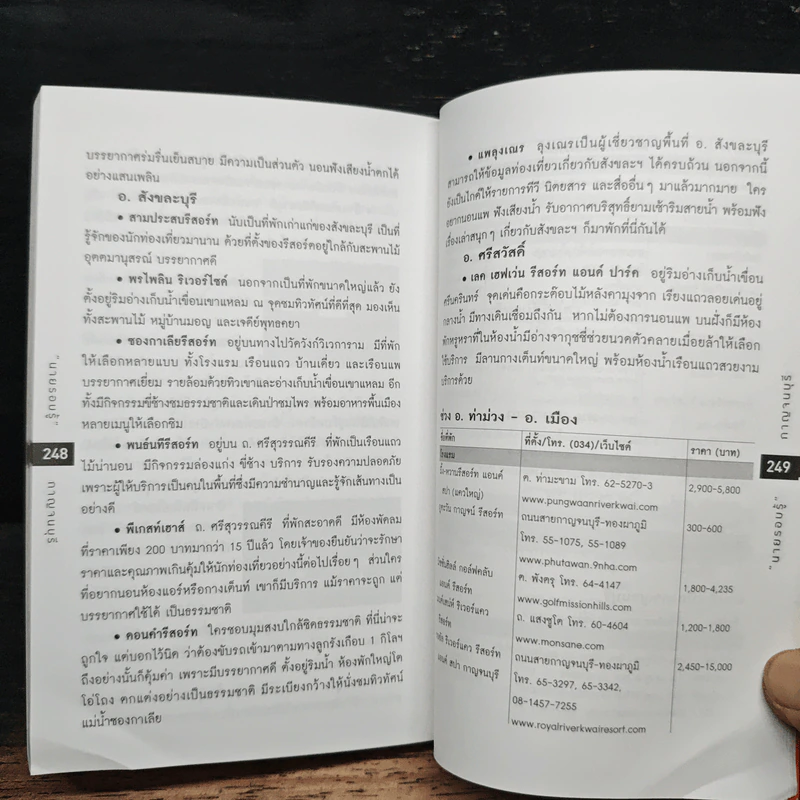 บรรยากาศร่มรื่นเย็นสบาย มีความเป็นส่วนตัว นอนฟังเสียงน้ำตกได้
อย่างแสนเพลิน
อ. สังขละบุรี
• สามประสบรีสอร์ท นับเป็นที่พักเก่าแก่ของสังขละบุรี เป็นที่
รู้จักของนักท่องเที่ยวมานาน ด้วยที่ตั้งของรีสอร์ตอยู่ใกล้กับสะพานไม้
อุตตมานุสรณ์ บรรยากาศดี
• พรไพลิน ริเวอร์ไซด์ นอกจากเป็นที่พักขนาดใหญ่แล้ว ยัง
ตั้งอยู่ริมอ่างเก็บน้ำเขื่อนเขาแหลม ณ จุดชมทิวทัศน์ที่ดีที่สุด มองเห็น
ทั้งสะพานไม้ หมู่บ้านมอญ และเจดีย์พุทธคยา
• ซองกาเลียรีสอร์ท อยู่บนทางไปวัดวังก์วิเวการาม มีที่พัก
ให้เลือกหลายแบบ ทั้งโรงแรม เรือนแถว บ้านเดี่ยว และเรือนแพ
บรรยากาศเยี่ยม รายล้อมด้วยทิวเขาและอ่างเก็บน้ำเขื่อนเขาแหลม อีก
ทั้งมีกิจกรรมขี่ช้างชมธรรมชาติและเดินป่าชมไพร พร้อมอาหารพื้นเมือง
หลายเมนูให้เลือกชิม
• พนธ์นทีรีสอร์ท อยู่บน ถ. ศรีสุวรรณคีรี ที่พักเป็นเรือนแถว
ไม้น่านอน มีกิจกรรมล่องแก่ง ขี่ช้าง บริการ รับรองความปลอดภัย
เพราะผู้ให้บริการเป็นคนในพื้นที่ซึ่งมีความชำนาญและรู้จักเส้นทางเป็น
อย่างดี
• พีเกสท์เฮาส์ ถ. ศรีสุวรรณคีรี ที่พักสะอาดดี มีห้องพัดลม
ที่ราคาเพียง 200 บาทมากว่า 15 ปีแล้ว โดยเจ้าของยืนยันว่าจะรักษา
ราคาและคุณภาพเกินคุ้มให้นักท่องเที่ยวอย่างนี้ต่อไปเรื่อยๆ ส่วนใคร
ที่อยากนอนห้องแอร์หรือกางเต็นท์ เขาก็มีบริการ แม้ราคาจะถูก แต่
บรรยากาศใช้ได้ เป็นธรรมชาติ
• ดอนคำรีสอร์ท ใครชอบมุมสงบใกล้ชิดธรรมชาติ ที่นี่น่าจะ
ถูกใจ แต่บอกไว้นิด ว่าต้องขับรถเข้ามาตามทางลูกรังเกือบ 1 กิโลฯ
ถึงอย่างนั้นก็คุ้มค่า เพราะมีบรรยากาศดี ตั้งอยู่ริมน้ำ ห้องพักใหญ่โต
โอ่โถง ตกแต่งอย่างเป็นธรรมชาติ มีระเบียงกว้างให้นั่งชมทิวทัศน์
แม่น้ำซองกาเลีย
"นายรอบรู้"
248
กาญจนบุรี
• แพลุงเณร ลุงเณรเป็นผู้เชี่ยวชาญพื้นที่ อ. สังขละบุรี
สามารถให้ข้อมูลท่องเที่ยวเกี่ยวกับสังขละฯ ได้ครบถ้วน นอกจากนี้
ยังเป็นไกด์ให้รายการทีวี นิตยสาร และสื่ออื่นๆ มาแล้วมากมาย ใคร
อยากนอนแพ ฟังเสียงน้ำ รับอากาศบริสุทธิ์ยามเช้าริมสายน้ำ พร้อมฟัง
เรื่องเล่าสนุกๆ เกี่ยวกับสังขละฯ ก็มาพักที่นี่กันได้
อ. ศรีสวัสดิ์
• เลค เฮฟเว่น รีสอร์ท แอนด์ ปาร์ค อยู่ริมอ่างเก็บน้ำเขื่อน
ศรีนครินทร์ จุดเด่นคือกระต๊อบไม้หลังคามุงจาก เรียงแถวลอยเด่นอยู่
กลางน้ำ มีทางเดินเชื่อมถึงกัน หากไม่ต้องการนอนแพ บนฝั่งก็มีห้อง
พักหรูหราที่ในห้องน้ำมีอ่างจากุซซี่ช่วยนวดตัวคลายเมื่อยล้าให้เลือก
ใช้บริการ มีลานกางเต็นท์ขนาดใหญ่ พร้อมห้องน้ำเรือนแถวสวยงาม
บริการด้วย
ช่วง อ. ท่าม่วง - อ. เมือง
ชื่อที่พัก ที่ตั้ง/โทร. (034)/เว็บไซต์ ราคา (บาท)
โรงแรม
รีสอร์ท แอนด์ ต. ท่ามะขาม โทร. 62-5270-3 2,900-5,800
สปา (แควใหญ่) www.pungwaanriverkwai.com
กาญจน์ รีสอร์ท ถนนสายกาญจนบุรี-ทองผาภูมิ 300-600
โทร. 55-1075, 55-1089
www.phutawan.9nha.com
กอล์ฟคลับ ต. พังตรุ โทร. 64-4147 1,800-4,235
แอนด์ รีสอร์ท www.golfmissionhills.com
ริเวอร์แคว ถ. แสงชูโต โทร. 60-4604 1,200-1,800
รีสอร์ท www.monsane.com
ริเวอร์แคว รีสอร์ท ถนนสายกาญจนบุรี-ทองผาภูมิ 2,450-15,000
แอนด์ สปา กาญจนบุรี โทร. 65-3297, 65-3342,
08-1457-7255
www.royalriverkwairesort.com
กาญจนบุรี
249